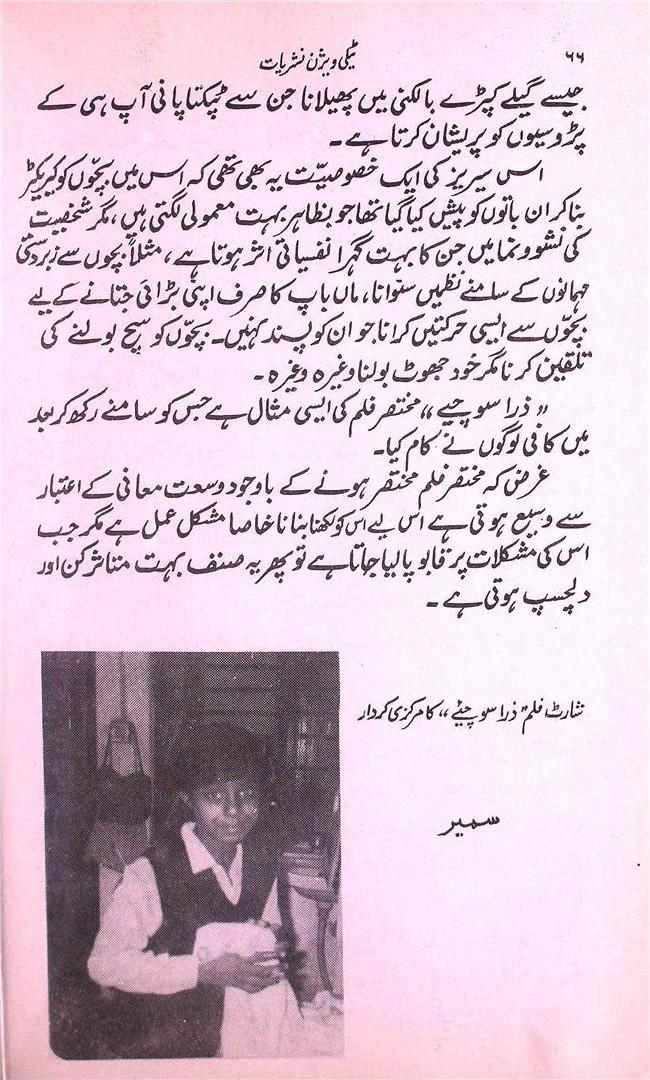 ۶۶
ٹیلی ویژن نشریات
جیسے گیلے کپڑے بالکنی میں پھیلانا جن سے ٹپکتا پانی آپ ہی کے
پڑوسیوں کو پریشان کرتا ہے۔
اس سیریز کی ایک خصوصیت یہ بھی تھی کہ اس میں بچّوں کو کیریکٹر
بنا کر ان باتوں کو پیش کیا گیا تھا جو بظاہر بہت معمولی لگتی ہیں، مگر شخصیت
کی نشوونما میں جن کا بہت گہرا نفسیاتی اثر ہوتا ہے، مثلاً بچوں سے زبردستی
مہمانوں کے سامنے نظمیں سنوانا، ماں باپ کا صرف اپنی بڑائی جتانے کے لیے
بچّوں سے ایسی حرکتیں کرانا جو ان کو پسند نہیں۔ بچّوں کو سچ بولنے کی
تلقین کرنا مگر خود جھوٹ بولنا وغیرہ وغیرہ۔
"ذرا سوچیے" مختصر فلم کی ایسی مثال ہے جس کو سامنے رکھ کر بعد
میں کافی لوگوں نے کام کیا۔
غرض کہ مختصر فلم مختصر ہونے کے باوجود وسعت معانی کے اعتبار
سے وسیع ہوتی ہے اس لیے اس کو لکھنا بنانا خاصا مشکل عمل ہے مگر جب
اس کی مشکلات پر قابو پا لیا جاتا ہے تو پھر یہ صنف بہت متاثر کن اور
دلچسپ ہوتی ہے۔
شارٹ فلم "ذرا سوچئے" کا مرکزی کردار
سمیر